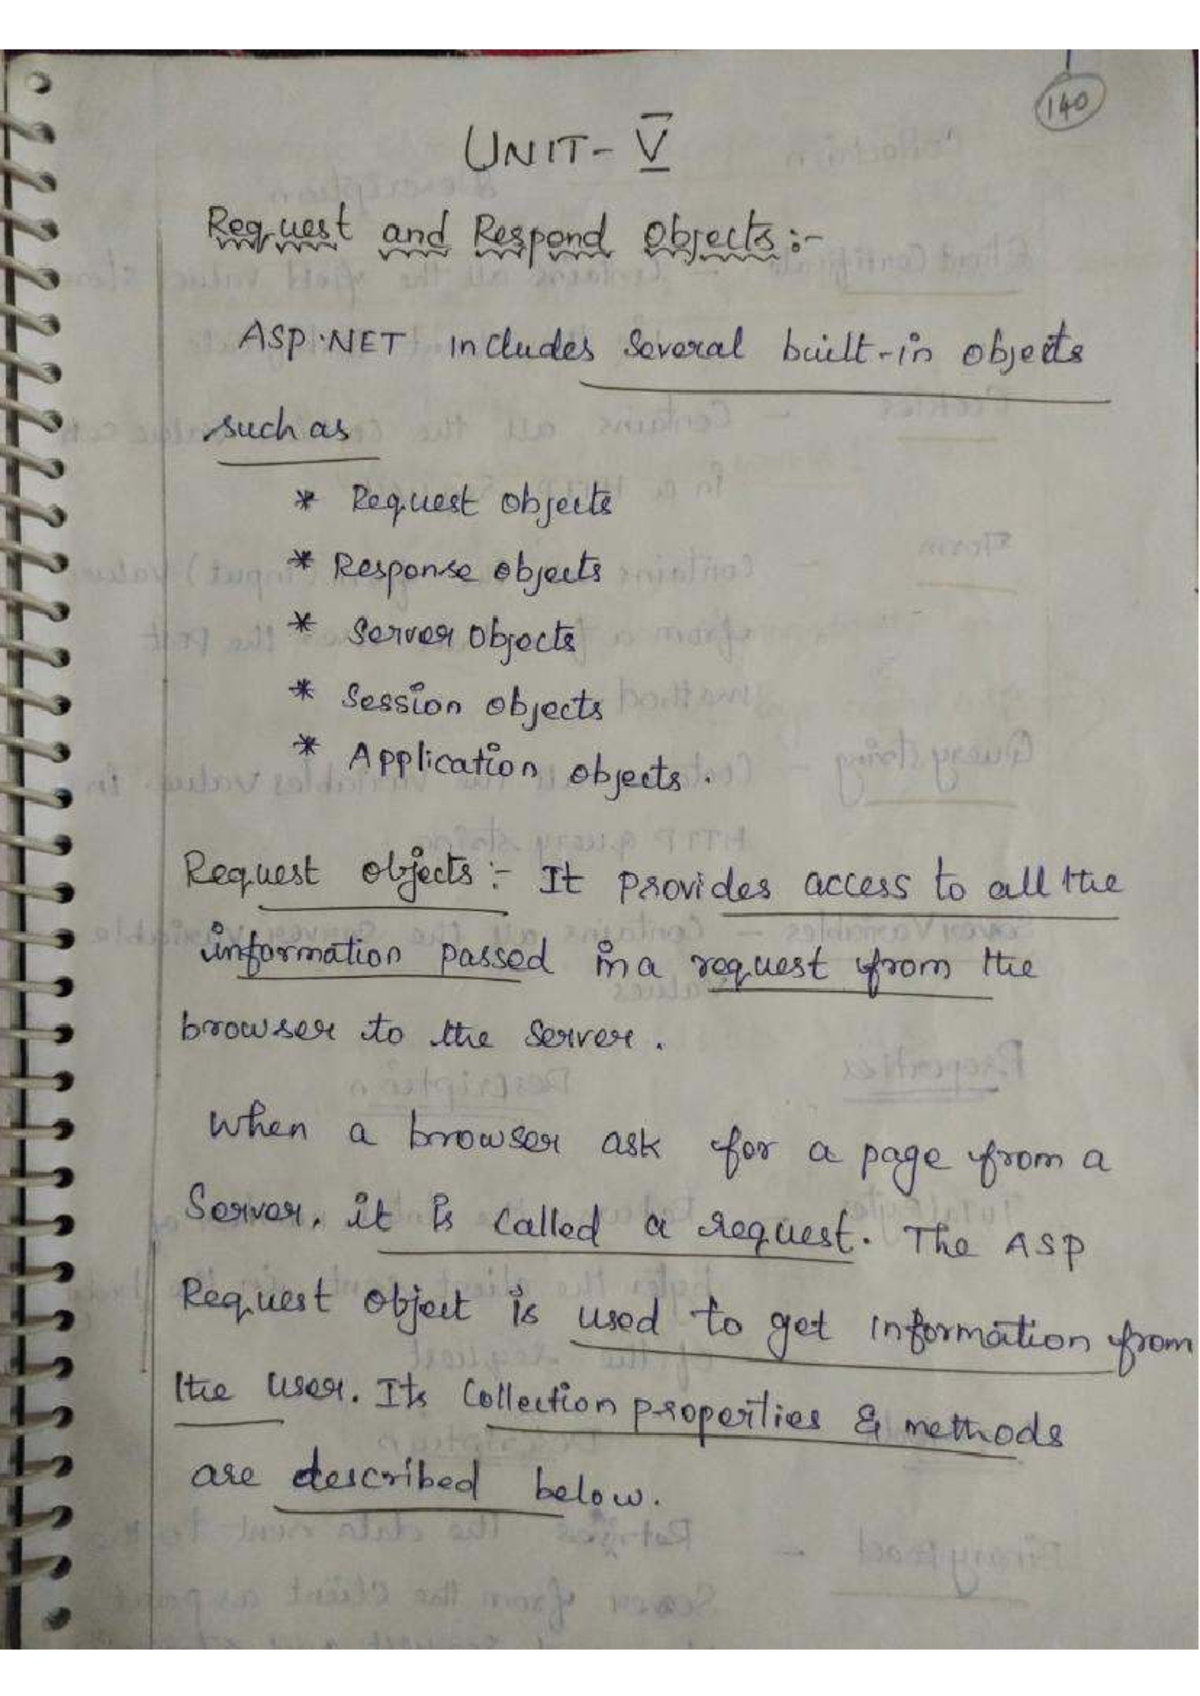 140
UNIT- V
Request and Respond Objects:-
ASP.NET includes several built-in objects
such as
* Request objects
* Response objects
* Server objects
* Session objects
* Application objects.
Request objects:- It provides access to all the
information passed in a request from the
browser to the server.
When a browser ask for a page from a
Server, it is called a request. The ASP
Request object is used to get information from
the user. Its Collection properties & methods
are described below.